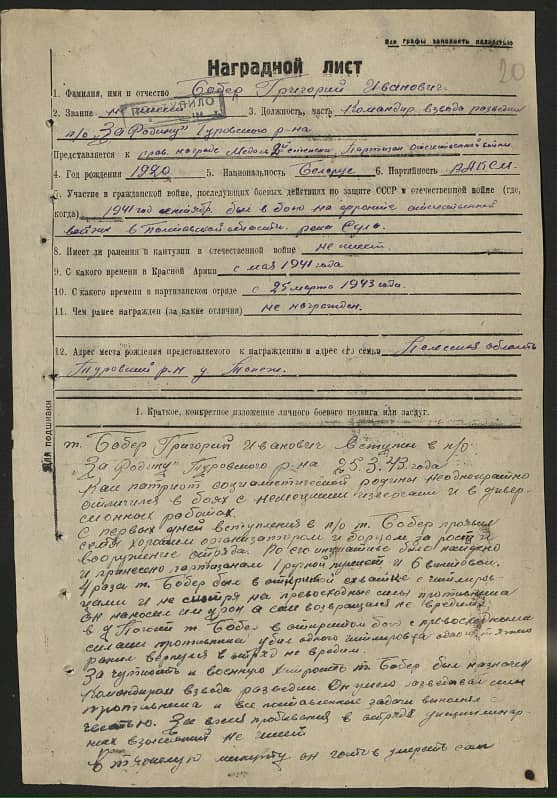 Все графы заполнять полностью
20
Наградной лист
1. Фамилия, имя и отчество Бобер Григорий Иванович.
2. Звание 3. Должность, часть Командир взвода разведки
п/о „За Родину" Туровского р-на
Представляется к прав. награде Медаль 2й степени Партизан Отечественной войны
4. Год рождения 1920 5. Национальность Белорус 6. Партийность ВЛКСМ
5. Участие в гражданской войне, последующих боевых действиях по защите СССР и отечественной войне (где,
когда) 1941 год сентябр. был в бою на фронте отечественной
войны в Полтавской области. река Сула.
8. Имеет ли ранения и контузии в отечественной войне не имеет
9. С какого времени в Красной Армии с мая 1941 года
10. С какого времени в партизанском отряде с 25 марта 1943 года.
11. Чем ранее награжден (за какие отличия) не награжден.
12. Адрес места рождения представляемого к награждению и адрес его семьи Полесская область
Туровский р-н д. Тонеж.
Для подшивки
1. Краткое, конкретное изложение личного боевого подвига или заслуг.
т. Бобер Григорий Иванович вступил в п/о
„За Родину" Туровского р-на 25.3.43. года
Как патриот социалистической родины неоднократно
отличился в боях с немецкими и в дивер-
сионных работах.
С первых дней вступления в п/о т. Бобер проявил
себя хорошим организатором и борцом за рост и
вооружение отряда. По его инициативе было найдено
и принесено партизанам 1 ручной пулемет и 6 винтовок.
4 раза т. Бобер был в открытой схватке с гитлеров-
цами и не смотря на превосходные силы противника
он наносил им урон а сам возвращался не вредим
в д. т. Бобер в открытом бою с превосходными
силами противника убил одного гитлеровца одного тяжело
ранил вернулся в отряд не вредим.
За чуткость и военную хитрость т. Бобер был назначен
Командиром взвода разведки. Он умело разведывал силы
противника и все поставленные задачи выполнял
честью. За время пребывания в отряде дисциплинар-
ных взысканий не имеет
в тяжелую минуту он готов умереть сам